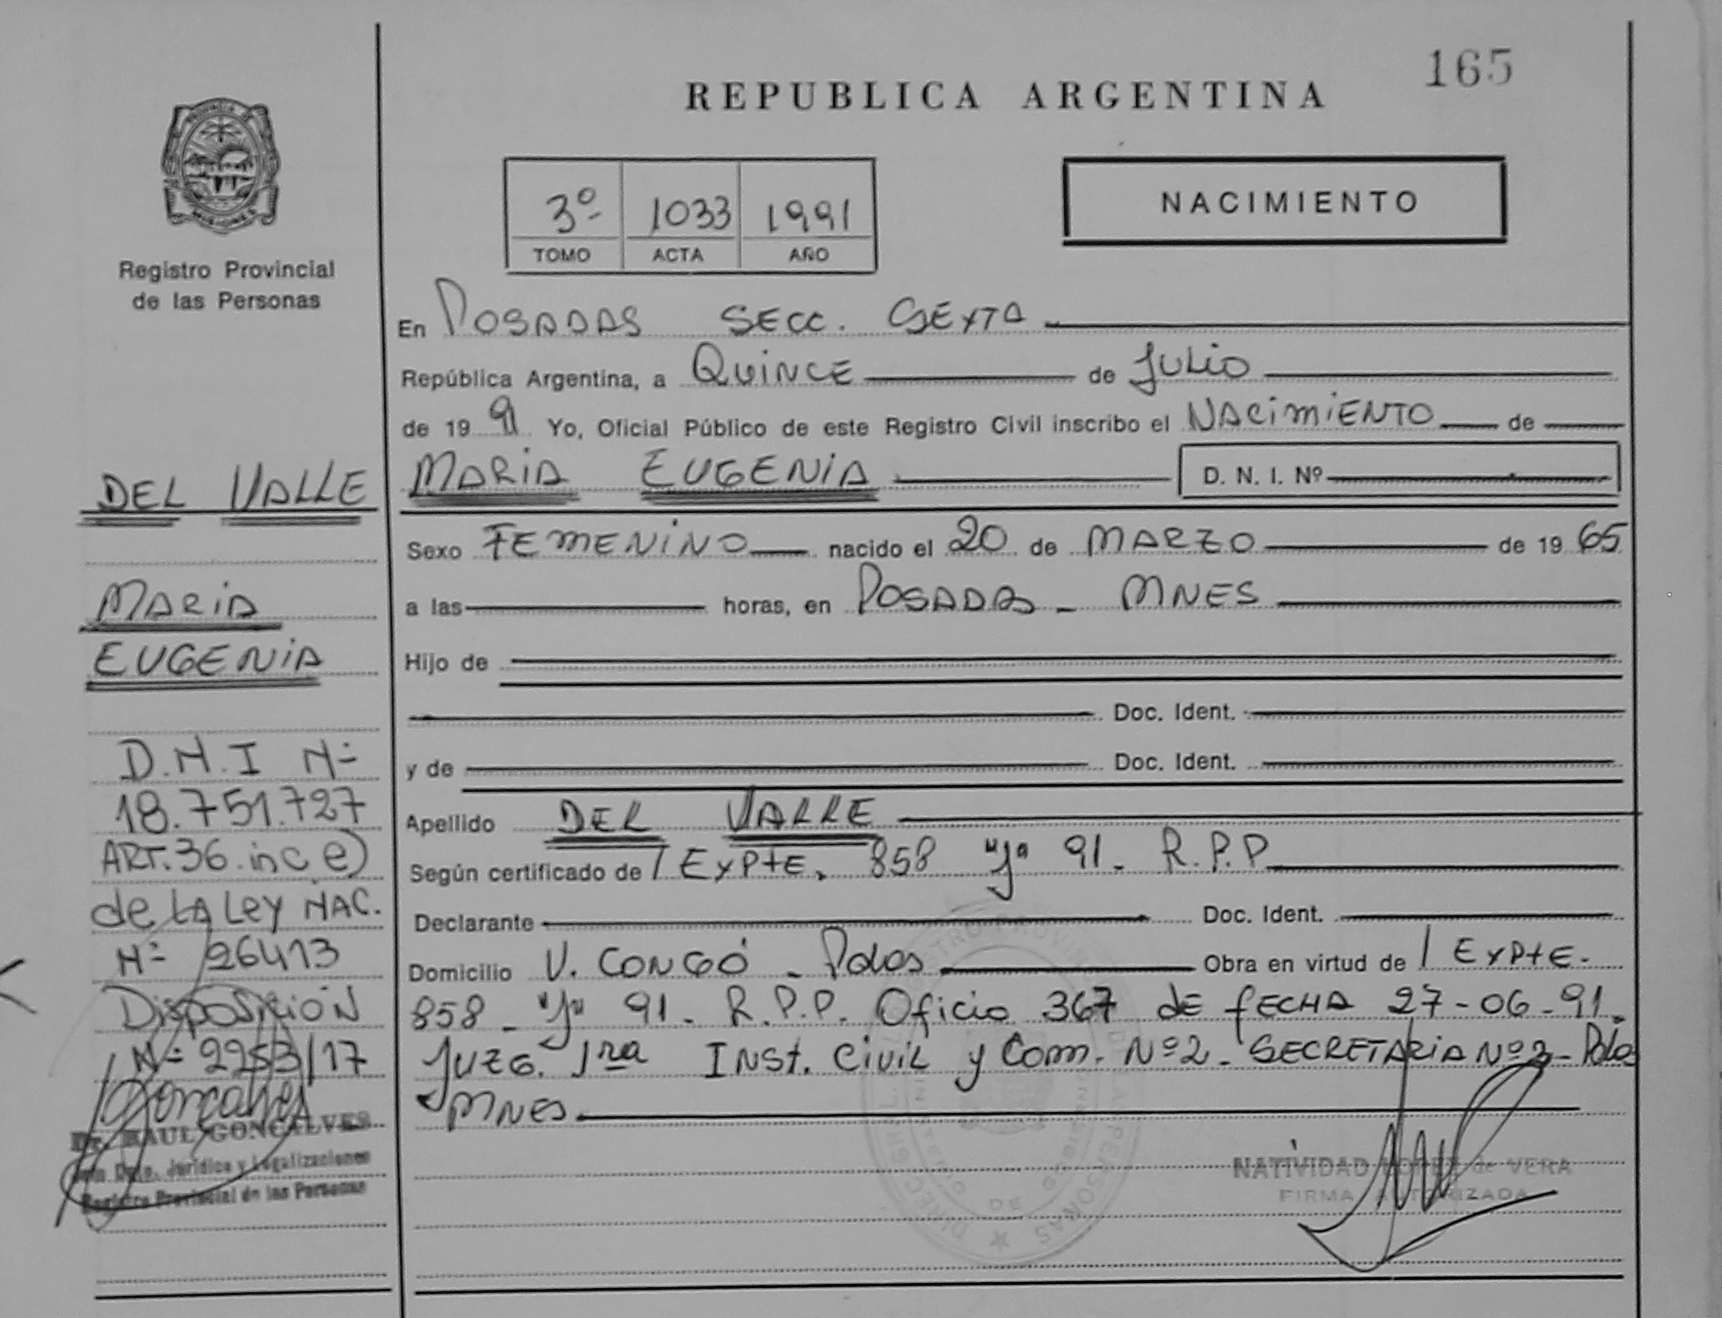 165
REPUBLICA ARGENTINA
PROVINCIA DE
MISIONES
Registro Provincial
de las Personas
3º 1033 1991
TOMO ACTA AÑO
NACIMIENTO
En POSADAS SECC. SEXTA
República Argentina, a QUINCE de JULIO
de 1991 Yo, Oficial Público de este Registro Civil inscribo el NACIMIENTO de
MARIA EUGENIA D. N. I. Nº
Sexo FEMENINO nacido el 20 de MARZO de 1965
a las horas, en POSADAS - MNES
Hijo de
Doc. Ident.
y de Doc. Ident.
Apellido DEL VALLE
Según certificado de / EXPTE. 858 "J" 91 - R.P.P
Declarante Doc. Ident.
Domicilio V. CONGÓ - Pdas Obra en virtud de / EXPTE.
858 - "J" 91 - R.P.P. Oficio 367 DE FECHA 27-06-91.
JUZG. 1ra INST. CIVIL y Com. Nº2 - SECRETARIA Nº3 - Pdas
MNES
NATIVIDAD LOPEZ de VERA
FIRMA AUTORIZADA
DEL VALLE
MARIA
EUGENIA
D.N.I Nº
18.751.727
ART. 36 inc e)
de LA LEY NAC.
Nº 26413
DISPOSICIÓN
Nº 2253/17
Dr. RAUL GONCALVES
Dpto. Jurídico y Legalizaciones
Registro Provincial de las Personas